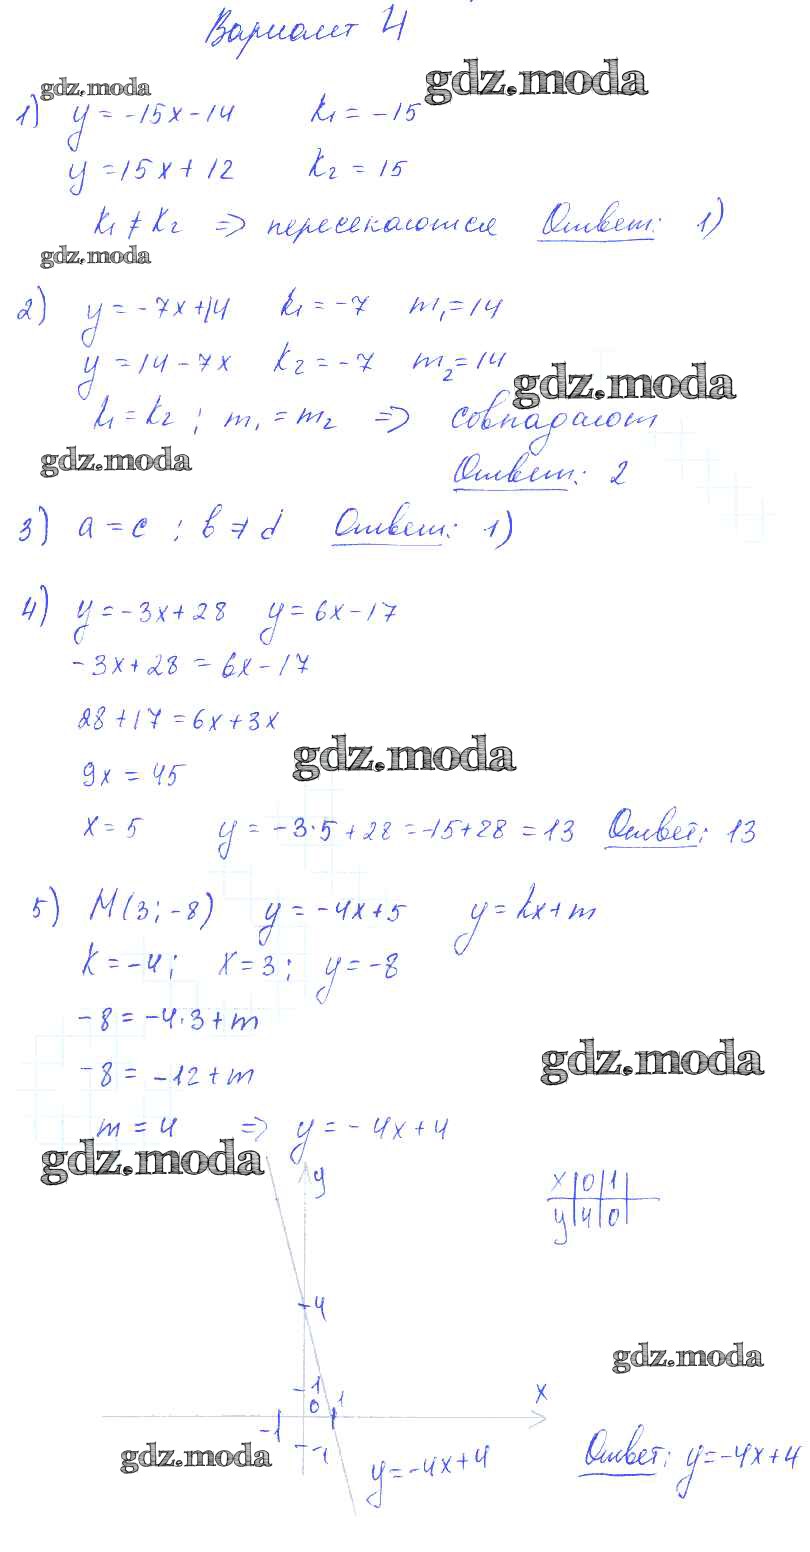 Вариант 4
gdz.moda gdz.moda
1) y = -15x - 14 k₁ = -15
y = 15x + 12 k₂ = 15
k₁ ≠ k₂ => пересекаются Ответ: 1)
gdz.moda
2) y = -7x + 14 k₁ = -7 m₁ = 14
y = 14 - 7x k₂ = -7 m₂ = 14
gdz.moda
k₁ = k₂ ; m₁ = m₂ => совпадают
gdz.moda
Ответ: 2
3) a = c ; b ≠ d Ответ: 1)
4) y = -3x + 28 y = 6x - 17
-3x + 28 = 6x - 17
28 + 17 = 6x + 3x
gdz.moda
9x = 45
x = 5 y = -3·5 + 28 = -15 + 28 = 13 Ответ: 13
5) M(3; -8) y = -4x + 5 y = kx + m
k = -4; x = 3; y = -8
-8 = -4·3 + m
gdz.moda
-8 = -12 + m
m = 4 => y = -4x + 4
gdz.moda
y
x 0 1
y 4 0
4
gdz.moda
1
0 1 x
-1
-1
gdz.moda
y = -4x + 4
Ответ: y = -4x + 4